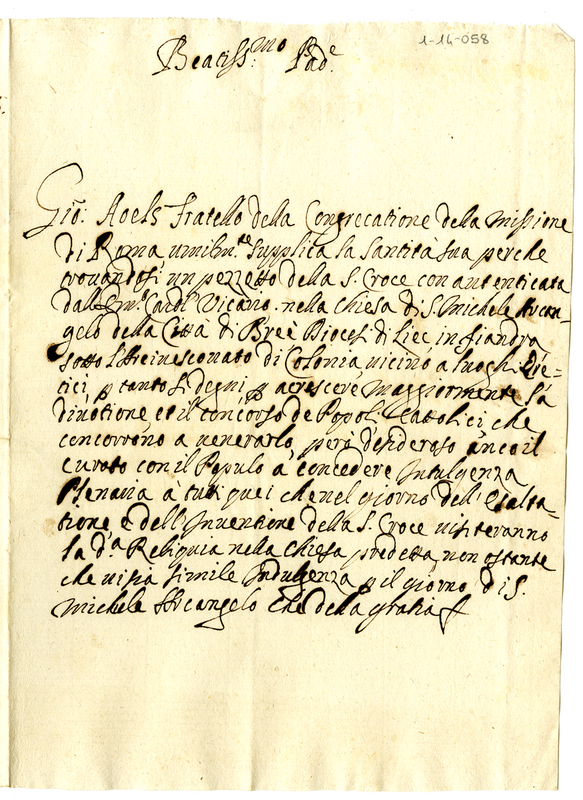 1-14-058
Beatiss.mo Pad.e
Gio: Aoels fratello della Congrecatione della missione
di Roma umilm.te supplica la Santità sua perche
trovandosi un pezzetto della S. Croce con autenticata
dall Em.o Card.l Vicario nella chiesa di S. Michele Arcan-
gelo della Citta di Breè Diocesi di Liec in fiandra
sotto di Colonia, vicino a luoghi Ere-
tici, p tanto si degni p acrescere maggiormente la
divotione et il concorso de Popoli Cattolici che
concorrono a venerarlo, però desideroso anco il
Curato con il Populo a concedere Indulgenza
Plenaria a tutti quei che nel giorno dell' Esalta-
tione e dell' Inventione della S. Croce visiteranno
la d.a Reliquia nella chiesa predetta, non ostante
che vi sia simile Indulgenza p il giorno di S.
Michele Arcangelo Che della gratia